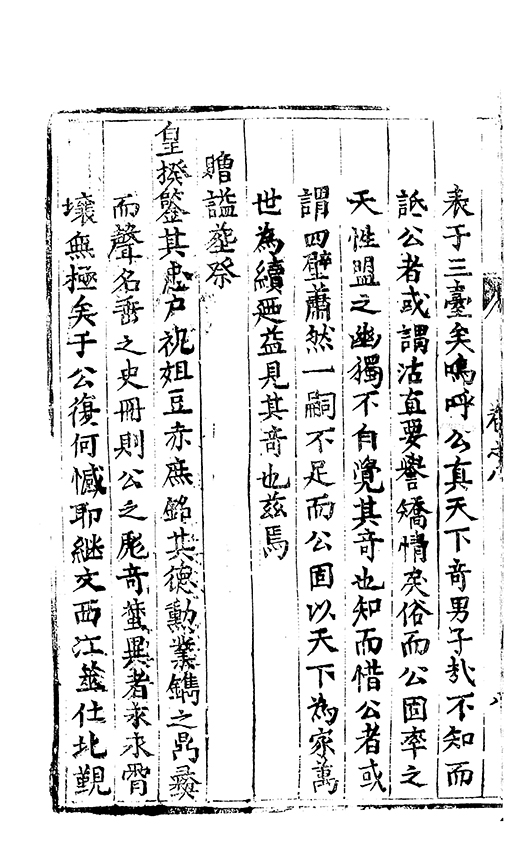 表于三臺矣嗚呼公真天下奇男子哉不知而
詆公者或謂沽直要譽矯情矣俗而公固率之
天性盟之幽獨不自覺其奇也知而惜公者或
謂四壁蕭然一嗣不足而公固以天下為家萬
世為續迺益見其奇也茲焉
贈謚塋祭
皇揆鑒其忠戶祝俎豆赤庶銘其德勳業鐫之鼎彝
而聲名垂之史冊則公之彪奇瑩異者永永霄
壤無極矣于公復何憾耶継文西江莅仕北覲
卷之八
八